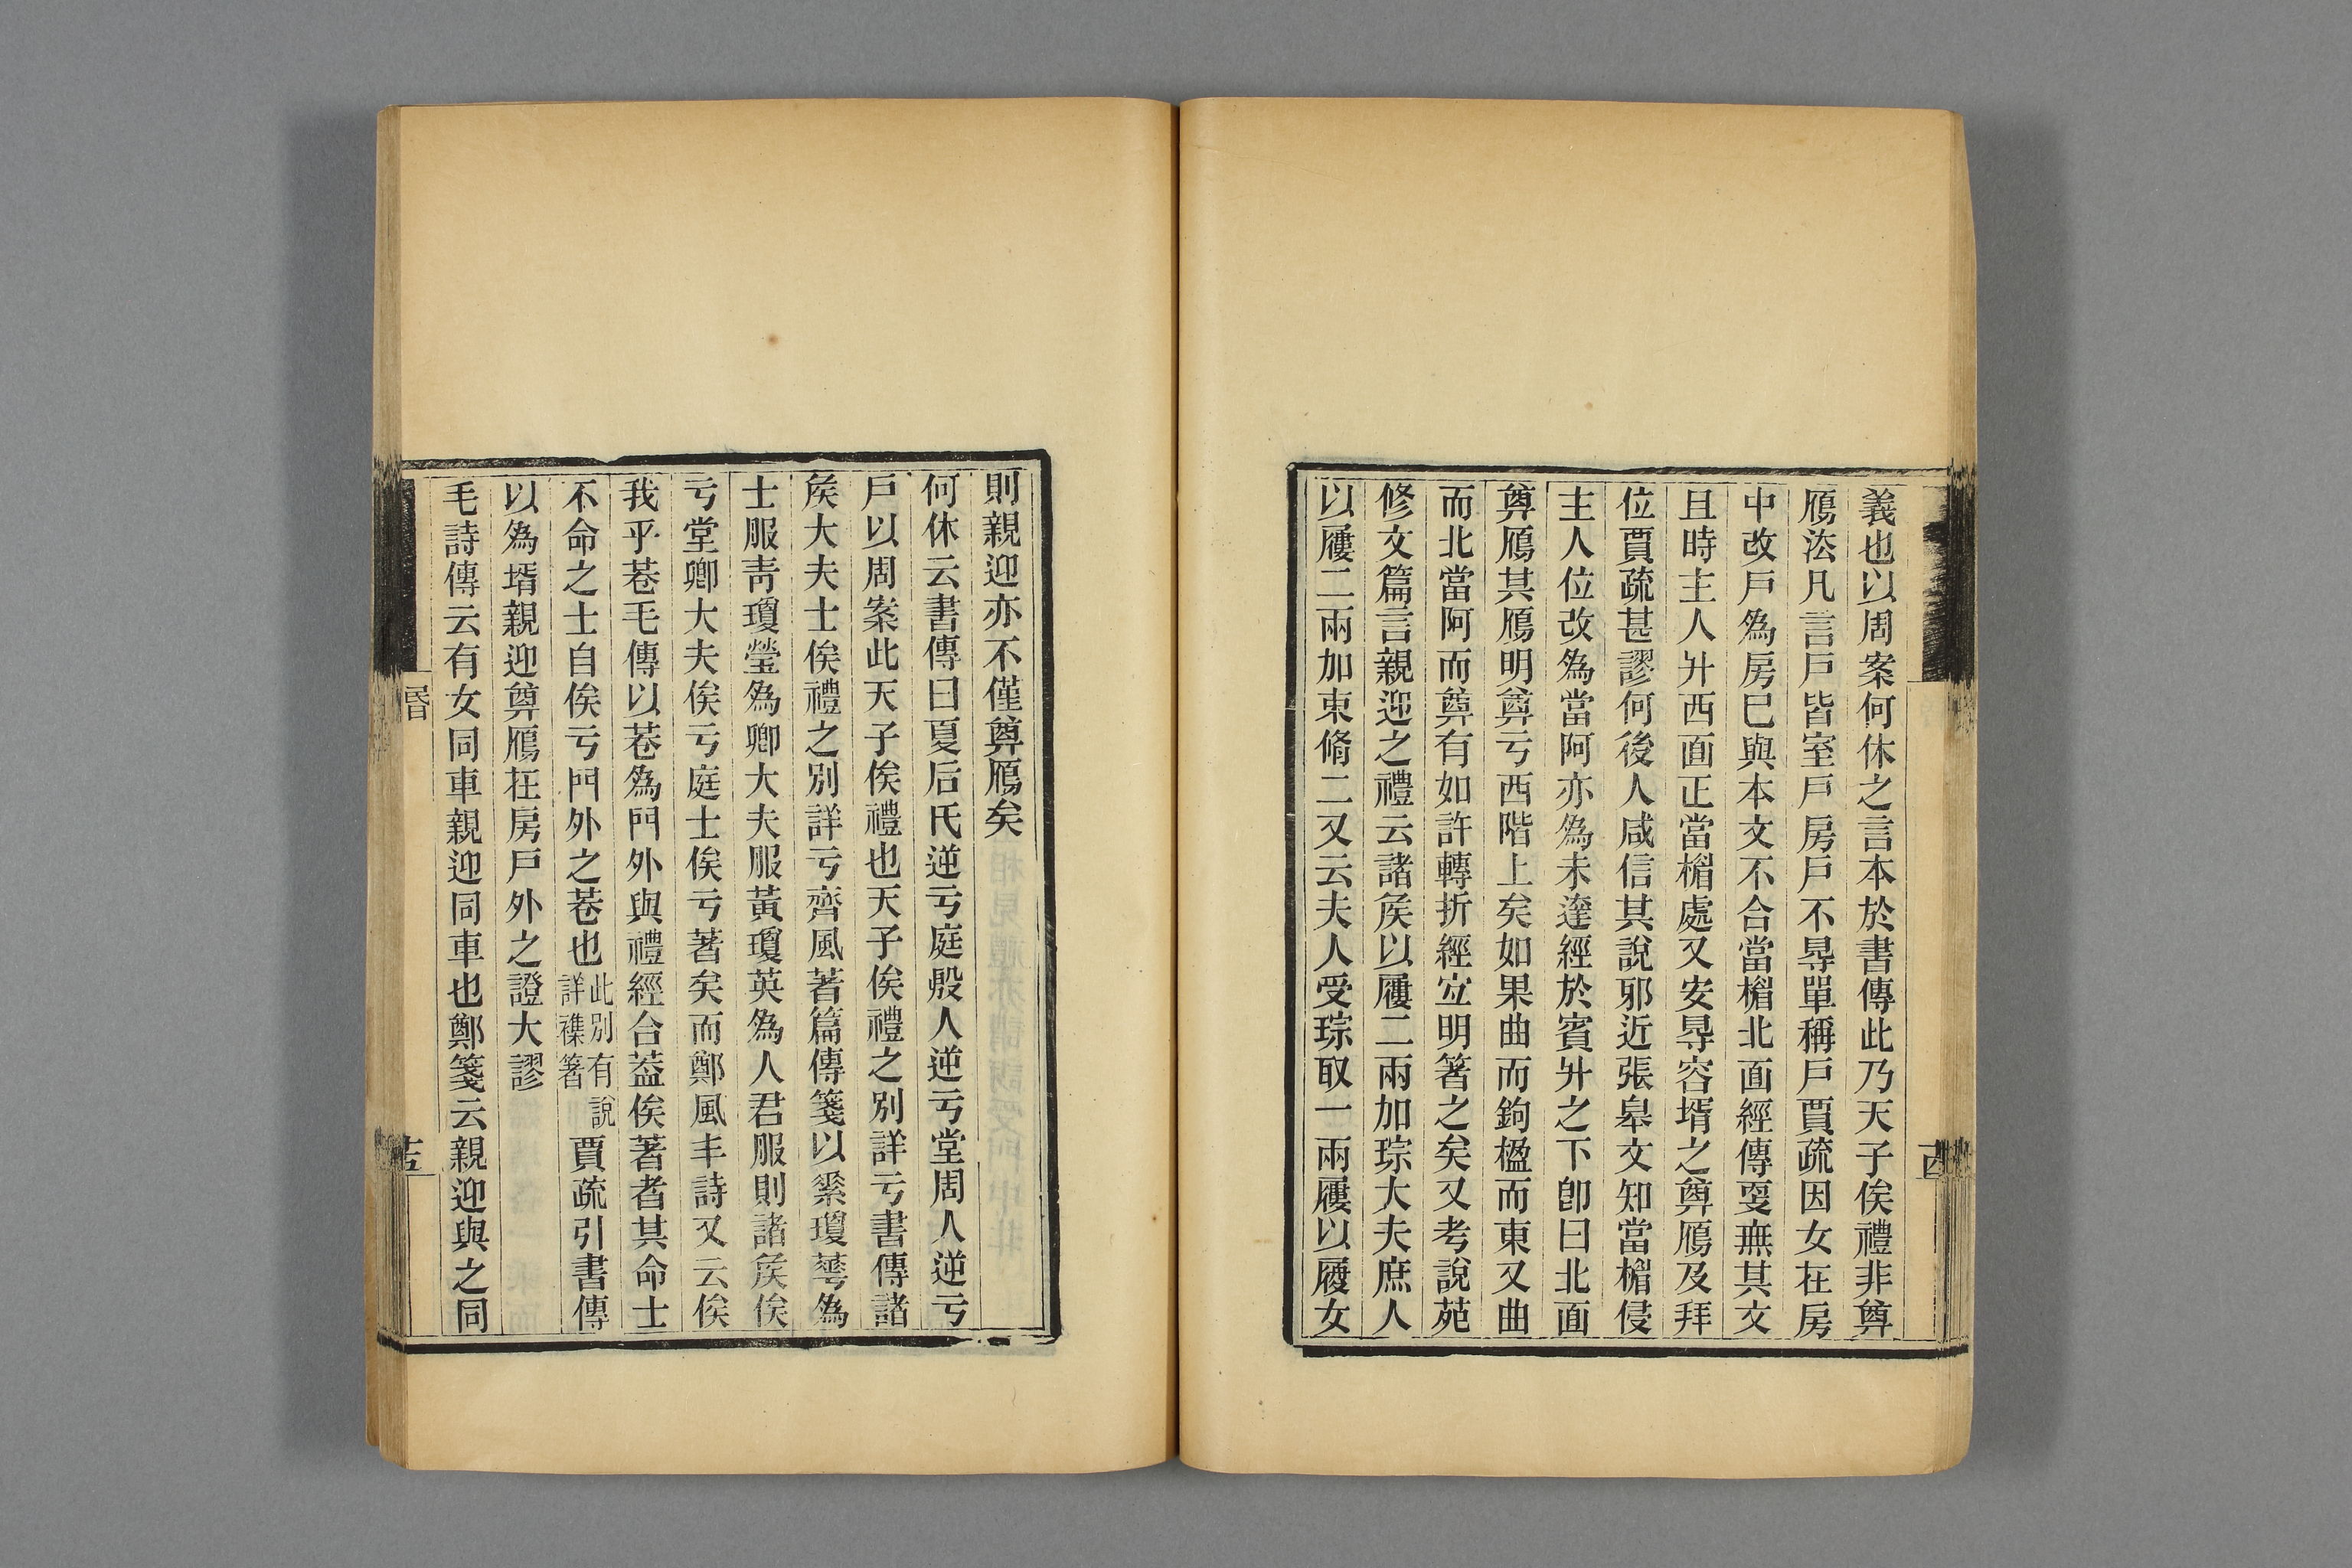 義也以周案何休之言本於書傳此乃天子俟禮非奠
鴈㳒凡言戶皆室戶房戶不㝵單稱戶賈疏因女在房
中改戶爲房已與本文不合當楣北面經傳㪅無其文
且時主人升西面正當楣處又安㝵容壻之奠鴈及拜
位賈疏甚謬何後人咸信其說邪近張皋文知當楣侵
主人位改爲當阿亦爲未達經於賓升之下卽曰北面
奠鴈其鴈明奠亏西階上矣如果曲而鉤楹而東又曲
而北當阿而奠有如許轉折經宐明箸之矣又考說苑
修文篇言親迎之禮云諸矦以屨二兩加琮大夫庶人
以屨二兩加束脩二又云夫人受琮取一兩屨以履女
則親迎亦不僅奠鴈矣
何休云書傳曰夏后氏逆亏庭殷人逆亏堂周人逆亏
戶以周案此天子俟禮也天子俟禮之別詳亏書傳諸
矦大夫士俟禮之別詳亏齊風著篇傳箋以素瓊華爲
士服青瓊瑩爲卿大夫服黃瓊英爲人君服則諸矦俟
亏堂卿大夫俟亏庭士俟亏著矣而鄭風丰詩又云俟
我乎巷毛傳以巷爲門外與禮經合葢俟著者其命士
不命之士自俟亏門外之巷也此別有說詳襍箸賈疏引書傳
以爲壻親迎奠鴈在房戶外之證大謬
毛詩傳云有女同車親迎同車也鄭箋云親迎與之同
昏